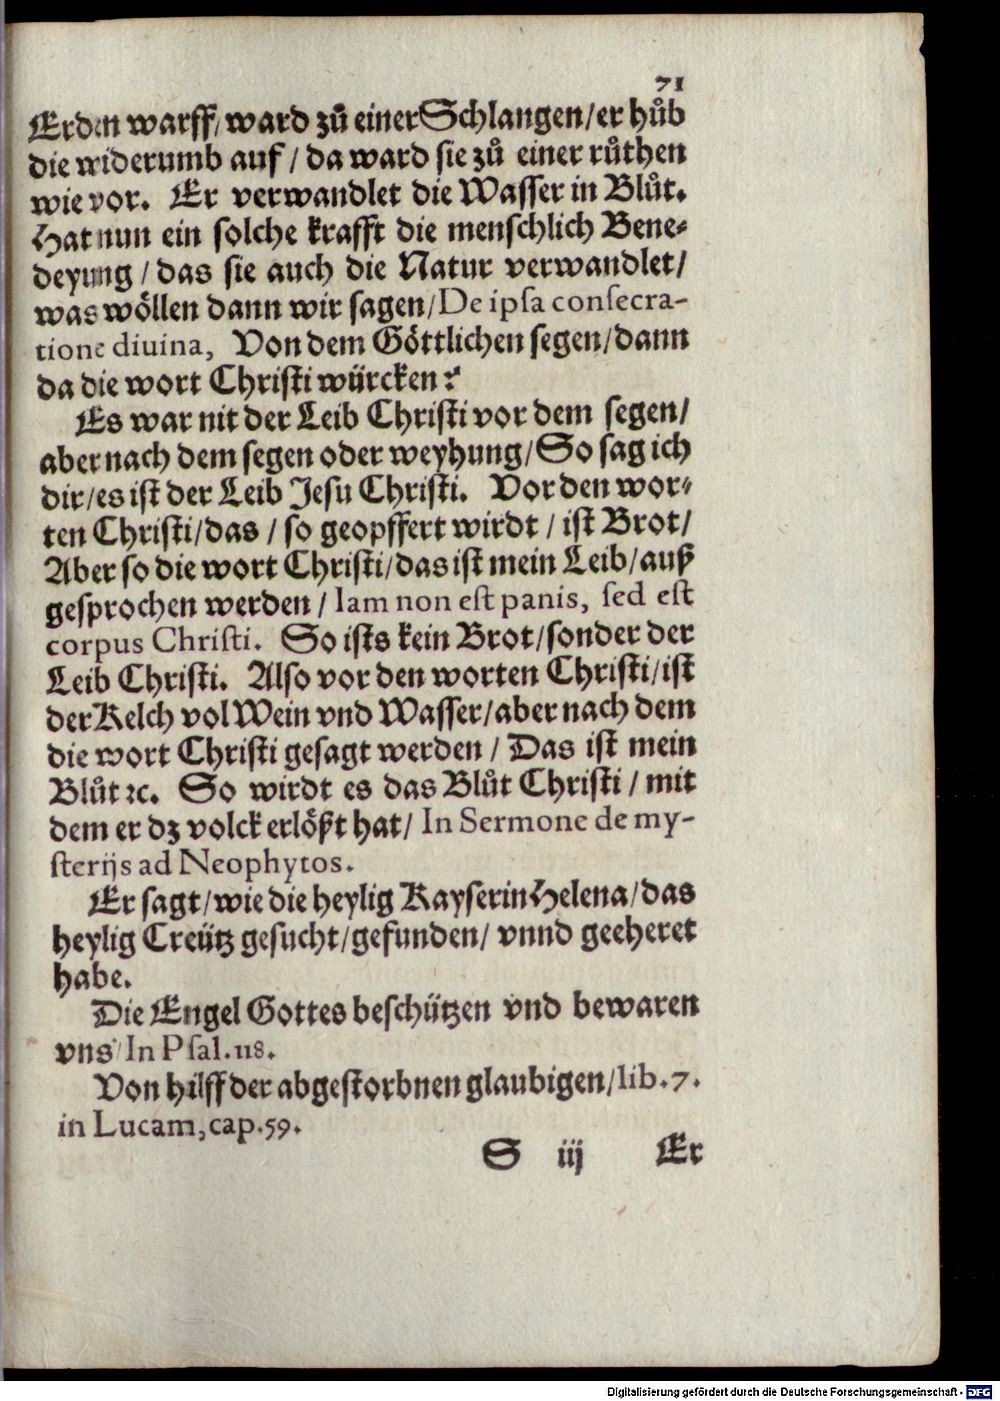 71
Erden warff/ ward zuͦ einer Schlangen/ er huͦb
die widerumb auf / da ward sie zuͦ einer ruͦthen
wie vor. Er verwandlet die Wasser in Bluͦt.
Hat nun ein solche krafft die menschlich Bene⸗
deyung / das sie auch die Natur verwandlet/
was woͤllen dann wir sagen/ De ipsa consecra-
tione diuina, Von dem Goͤttlichen segen/ dann
da die wort Christi wuͤrcken?
Es war nit der Leib Christi vor dem segen/
aber nach dem segen oder weyhung/ So sag ich
dir/ es ist der Leib Jesu Christi. Vor den wor⸗
ten Christi/ das / so geopffert wirdt / ist Brot/
Aber so die wort Christi/ das ist mein Leib/ auß
gesprochen werden / Iam non est panis, sed est
corpus Christi. So ists kein Brot/ sonder der
Leib Christi. Also vor den worten Christi/ ist
der Kelch vol Wein vnd Wasser/ aber nach dem
die wort Christi gesagt werden / Das ist mein
Bluͦt ꝛc. So wirdt es das Bluͦt Christi / mit
dem er dz volck erloͤßt hat/ In Sermone de my-
sterijs ad Neophytos.
Er sagt/ wie die heylig Kayserin Helena/ das
heylig Creuͤtz gesucht/ gefunden/ vnnd geeheret
habe.
Die Engel Gottes beschuͤtzen vnd bewaren
vns/ In Psal. 118.
Von hilff der abgestorbnen glaubigen/ lib. 7.
in Lucam, cap. 59.
S iij Er
Digitalisierung gefördert durch die Deutsche Forschungsgemeinschaft - DFG